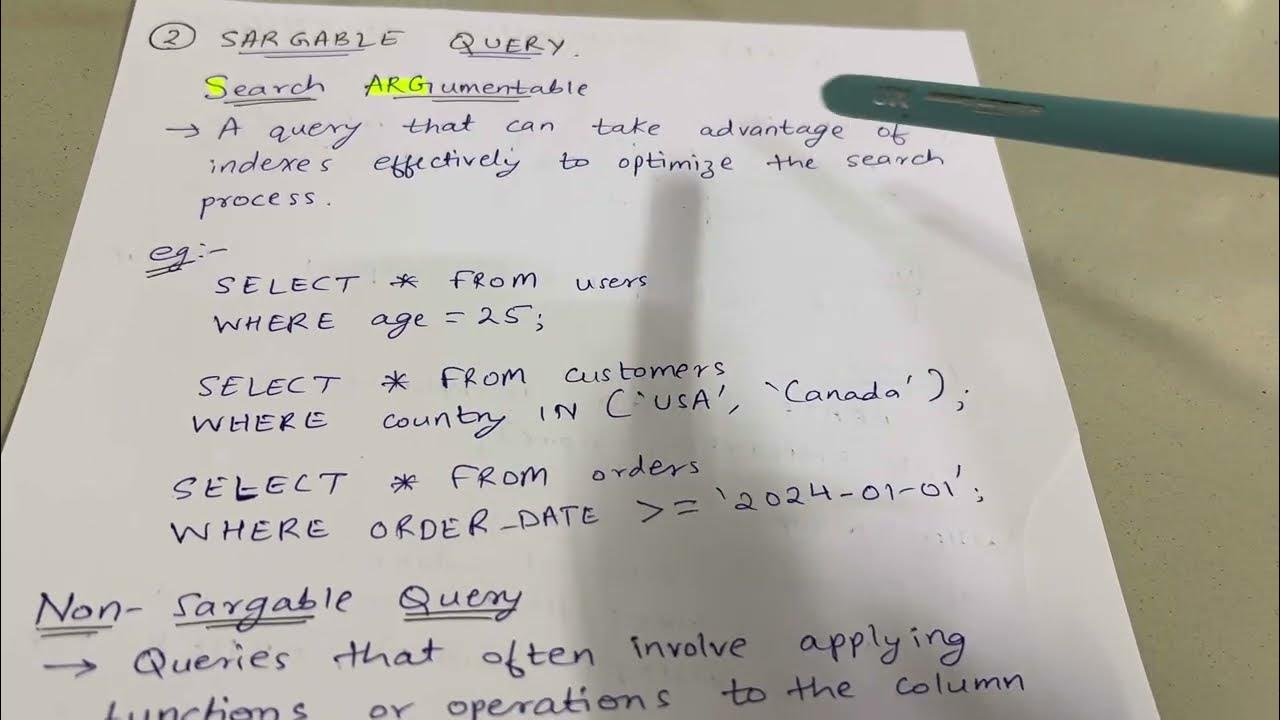 ② SARGABLE QUERY.
Search ARGumentable
→ A query that can take advantage of
indexes effectively to optimize the search
process.
eg:-
SELECT * FROM users
WHERE age = 25;
SELECT * FROM customers
WHERE country IN ('USA', 'Canada');
SELECT * FROM orders
WHERE ORDER_DATE >= '2024-01-01';
Non- Sargable Query
→ Queries that often involve applying
functions or operations to the column